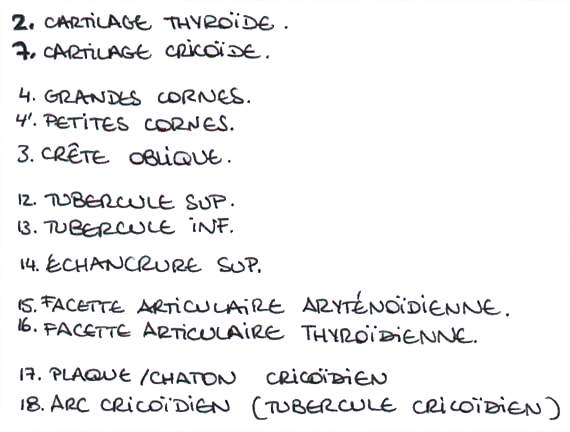 2. CARTILAGE THYROÏDE.
7. CARTILAGE CRICOÏDE.
4. GRANDES CORNES.
4'. PETITES CORNES.
3. CRÊTE OBLIQUE.
12. TUBERCULE SUP.
13. TUBERCULE INF.
14. ÉCHANCRURE SUP.
15. FACETTE ARTICULAIRE ARYTÉNOÏDIENNE.
16. FACETTE ARTICULAIRE THYROÏDIENNE.
17. PLAQUE/CHATON CRICOÏDIEN
18. ARC CRICOÏDIEN (TUBERCULE CRICOÏDIEN)